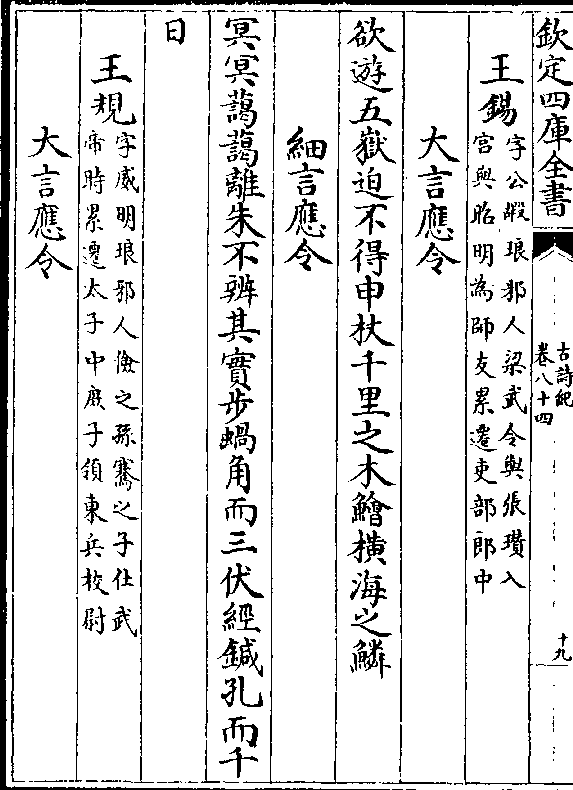 欽定四庫全書
古詩紀
卷八十四
十九
王錫
字公嘏琅邪人梁武令與張瓚入
宫與昭明為師友累遷吏部郎中
大言應令
欲遊五嶽迫不得申杖千里之木鱠横海之鱗
細言應令
冥冥藹藹離朱不辨其實步蝸角而三伏經鍼孔而千
日
王規
字威明琅邪人儉之孫騫之子仕武
帝時累遷太子中庶子領東兵校尉
大言應令